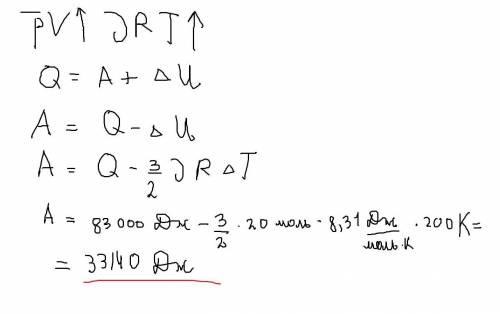 PV↑ ℐRT↑
Q = A + ΔU
A = Q - ΔU
A = Q - 3/2 ℐRΔT
A = 83 000 Дж - 3/2 · 20 моль · 8,31 Дж/моль·К · 200К =
= 33140 Дж